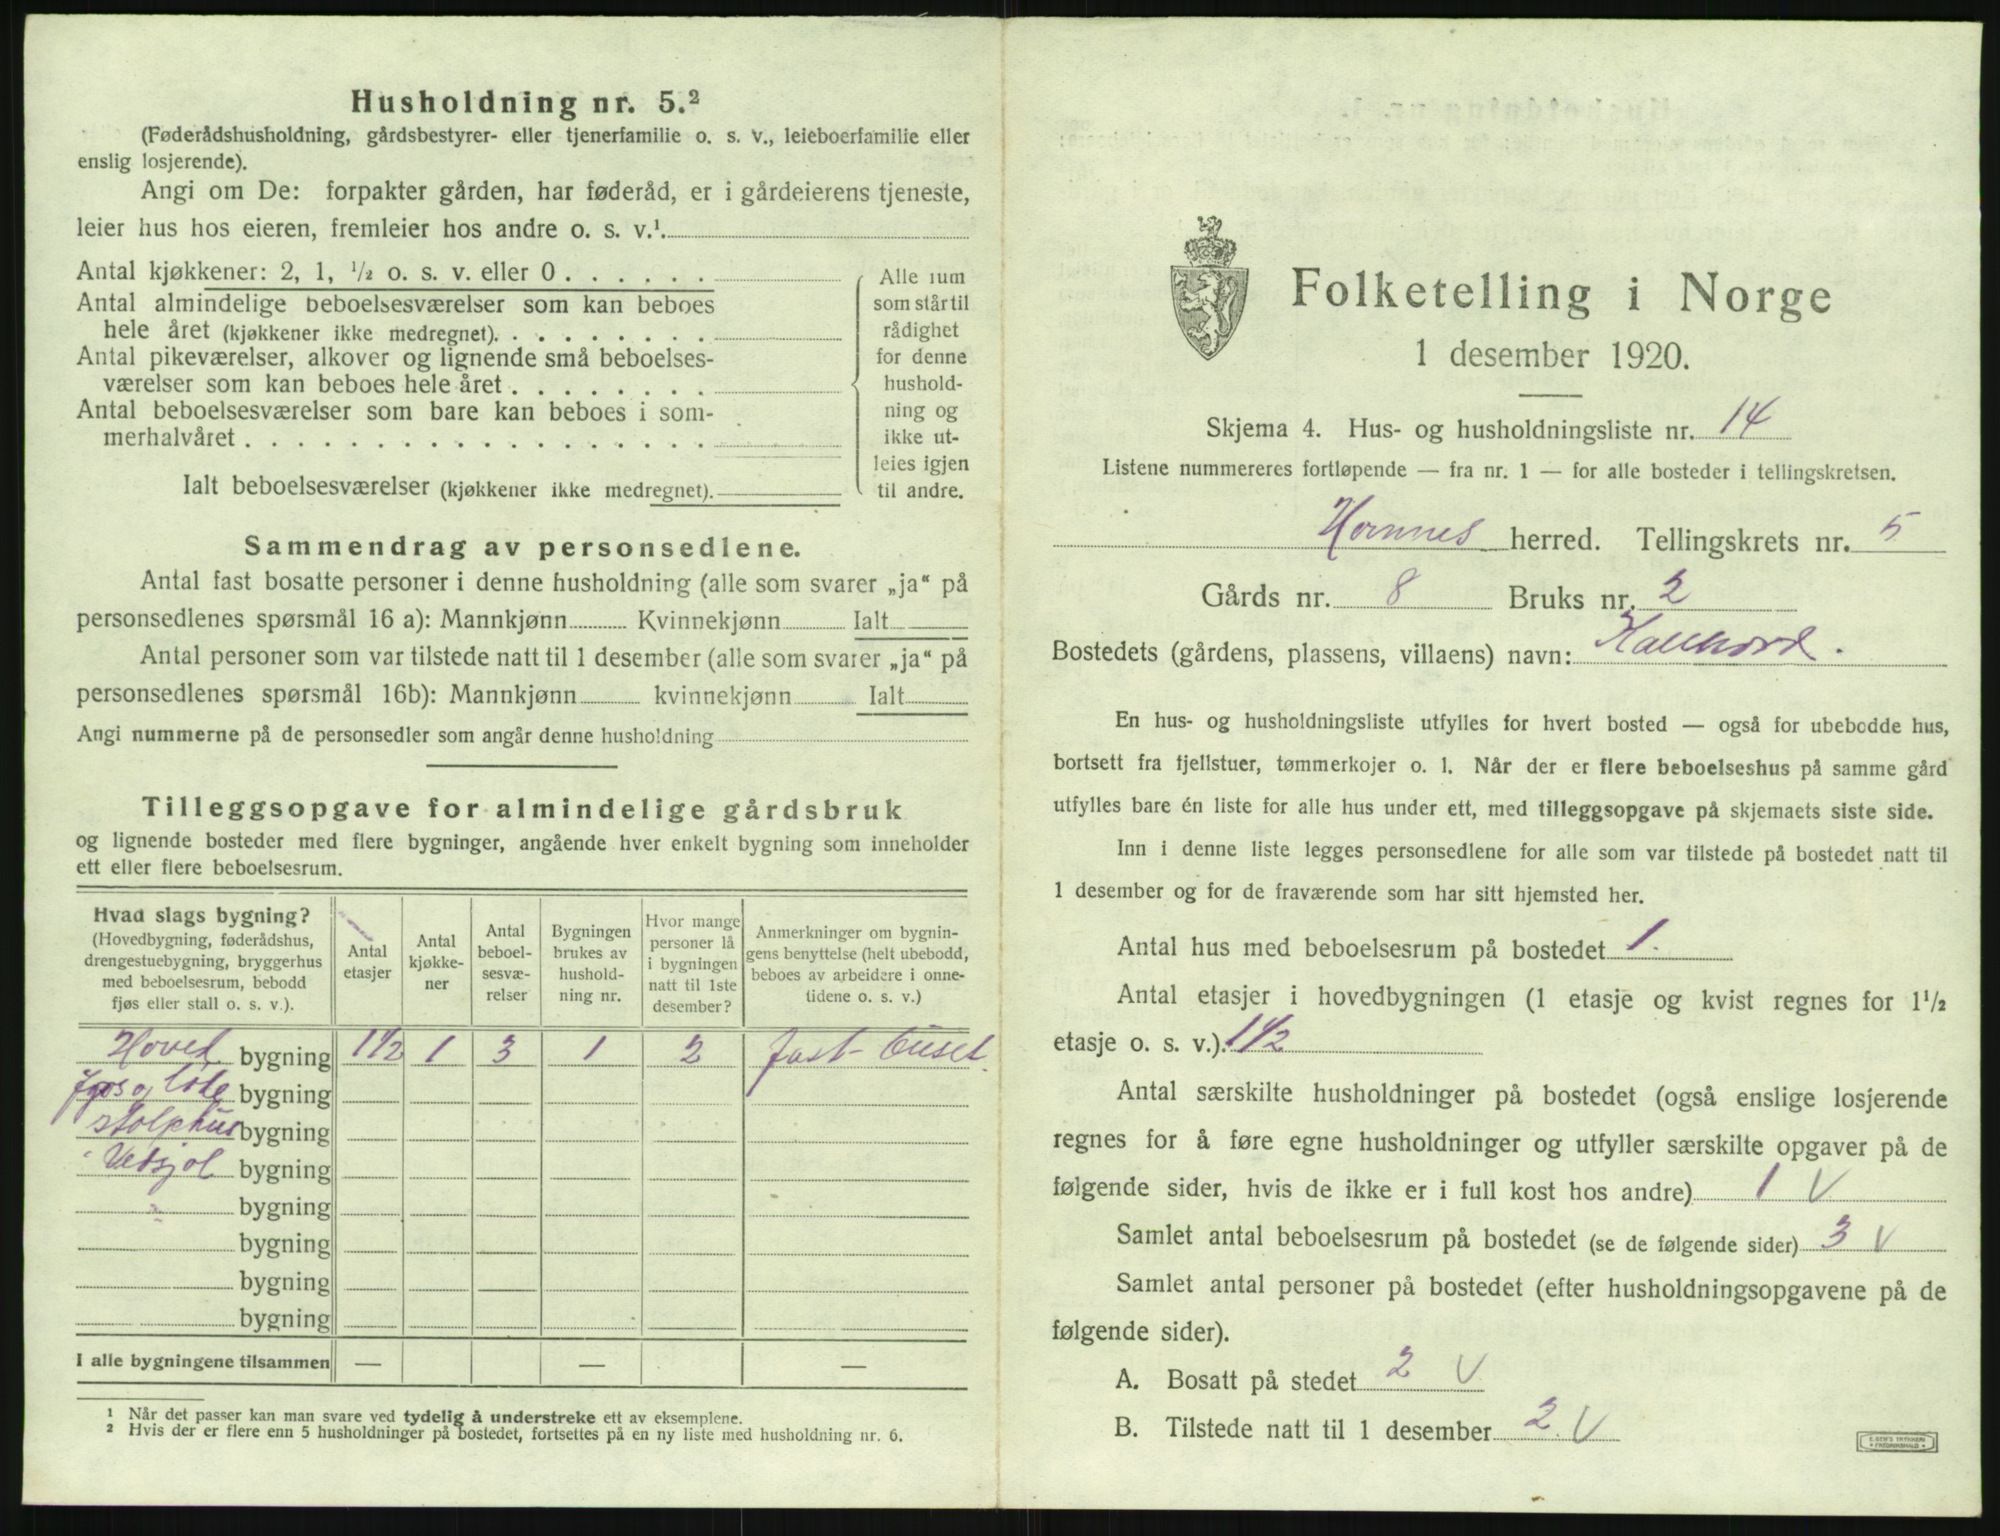 Husholdning nr. 5.²
(Føderådshusholdning, gårdsbestyrer- eller tjenerfamilie o. s. v., leieboerfamilie eller
enslig losjerende).
Angi om De: forpakter gården, har føderåd, er i gårdeierens tjeneste,
leier hus hos eieren, fremleier hos andre o. s. v.¹
Antal kjøkkener: 2, 1, ¹/₂ o. s. v. eller 0 . . . . . .
Antal almindelige beboelsesværelser som kan beboes
hele året (kjøkkener ikke medregnet). . . . . . . . .
Antal pikeværelser, alkover og lignende små beboelses-
værelser som kan beboes hele året . . . . . . . .
Antal beboelsesværelser som bare kan beboes i som-
merhalvåret . . . . . . . . . . . . . . . . . .
Ialt beboelsesværelser (kjøkkener ikke medregnet).
Alle rum
som står til
rådighet
for denne
hushold-
ning og
ikke ut-
leies igjen
til andre.
Sammendrag av personsedlene.
Antal fast bosatte personer i denne husholdning (alle som svarer „ja“ på
personsedlenes spørsmål 16 a): Mannkjønn Kvinnekjønn Ialt
Antal personer som var tilstede natt til 1 desember (alle som svarer „ja“ på
personsedlenes spørsmål 16b): Mannkjønn kvinnekjønn Ialt
Angi nummerne på de personsedler som angår denne husholdning
Tilleggsopgave for almindelige gårdsbruk
og lignende bosteder med flere bygninger, angående hver enkelt bygning som inneholder
ett eller flere beboelsesrum.
Hvad slags bygning?
(Hovedbygning, føderådshus,
drengestuebygning, bryggerhus
med beboelsesrum, bebodd
fjøs eller stall o. s. v.).
Antal
etasjer
Antal
kjøkke-
ner
Antal
beboel-
sesvæ-
relser
Bygningen
brukes av
hushold-
ning nr.
Hvor mange
personer lå
i bygningen
natt til 1ste
desember?
Anmerkninger om bygnin-
gens benyttelse (helt ubebodd,
beboes av arbeidere i onne-
tidene o. s. v.)
Hoved bygning 1½ 1 3 1 2 fast
bygning
bygning
Vedsjol bygning
bygning
bygning
bygning
bygning
I alle bygningene tilsammen — — —
¹ Når det passer kan man svare ved tydelig å understreke ett av eksemplene.
² Hvis der er flere enn 5 husholdninger på bostedet, fortsettes på en ny liste med husholdning nr. 6.
Folketelling i Norge
1 desember 1920.
Skjema 4. Hus- og husholdningsliste nr. 14
Listene nummereres fortløpende — fra nr. 1 — for alle bosteder i tellingskretsen.
Hornnes herred. Tellingskrets nr. 5
Gårds nr. 8 Bruks nr. 2
Bostedets (gårdens, plassens, villaens) navn:
En hus- og husholdningsliste utfylles for hvert bosted — også for ubebodde hus,
bortsett fra fjellstuer, tømmerkojer o. l. Når der er flere beboelseshus på samme gård
utfylles bare én liste for alle hus under ett, med tilleggsopgave på skjemaets siste side.
Inn i denne liste legges personsedlene for alle som var tilstede på bostedet natt til
1 desember og for de fraværende som har sitt hjemsted her.
Antal hus med beboelsesrum på bostedet 1.
Antal etasjer i hovedbygningen (1 etasje og kvist regnes for 1¹/₂
etasje o. s. v.). 1½
Antal særskilte husholdninger på bostedet (også enslige losjerende
regnes for å føre egne husholdninger og utfyller særskilte opgaver på de
følgende sider, hvis de ikke er i full kost hos andre) 1 V
Samlet antal beboelsesrum på bostedet (se de følgende sider) 3 V
Samlet antal personer på bostedet (efter husholdningsopgavene på de
følgende sider).
A. Bosatt på stedet 2 V
B. Tilstede natt til 1 desember 2. V